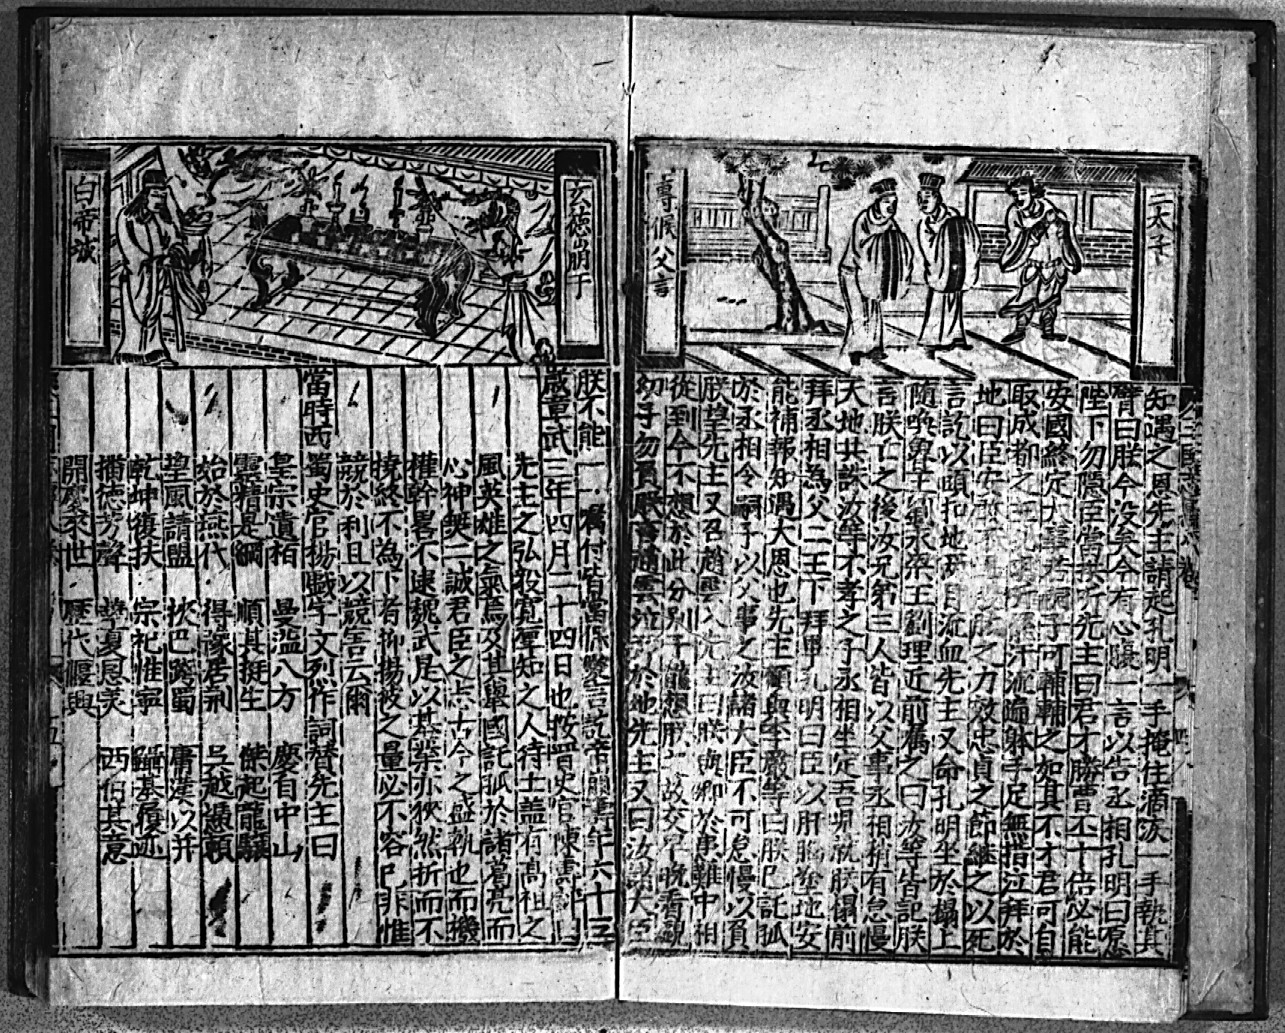 二太子
尊候父言
知遇之恩先主請起孔明一手掩住淚一手執其
臂曰朕今沒矣今有心腹一言以告丞相孔明曰愿
陛下勿隱臣當拱听先主曰君才勝曹丕十倍必能
安國終定大事若嗣子可輔輔之如其不才君可自
取成都之主孔明听罷汗流遍躰手足無措泣拜於
地曰臣安敢不竭股肱之力效忠貞之節繼之以死
言訖以頭扣地兩目流血先主又命孔明坐於榻上
隨喚魯王劉永梁王劉理近前囑之曰汝等皆記朕
言朕亡之後汝兄弟三人皆以父事丞相稍有怠慢
天地共誅汝等不孝之子丞相坐定吾兒就朕榻前
拜丞相為父二王下拜畢孔明曰臣以肝腦塗地安
能補報知遇大恩也先主顧與李嚴等曰朕已託孤
於丞相令嗣子以父事之汝諸大臣不可怠慢以負
朕望先主又召趙雲入先主曰朕與卿於患難中相
從到今不想於此分別子龍想朕之故交早晚看覷
幼子勿負朕言趙雲泣拜於地先主又曰汝諸大臣
玄德崩于
白帝城
朕不能一一囑付皆當保愛言訖帝崩壽年六十三
歲章武三年四月二十四日也按晋史官陳壽評曰
先主之弘毅寬厚知之人待士蓋有高祖之
風英雄之氣焉及其舉國託孤於諸葛亮而
心神與二誠君臣之志古今之盛軌也而機
權幹畧不逮魏武是以基業亦狹然折而不
撓終不為下者抑揚彼之量必不容已非惟
競於利且以競害云爾
當時西蜀史官楊戲字文烈作詞贊先主曰
皇宗遺植 曼溢八方 慶自中山
靈精是鋼 順其挺生 傑起龍驤
始於燕代 得豫居荆 吳越憑賴
望風請盟 挾巴跨蜀 庸漢以并
乾坤復扶 宗祀惟寧 躡基履迹
播德芳聲 華夏恩美 西伯其意
開慶來世 歷代偃興